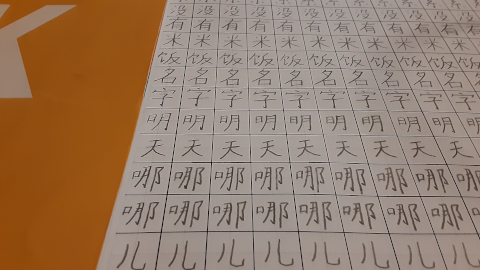 没没没没没没没没没没没
有有有有有有有有有有有
米米米米米米米米米米米
饭饭饭饭饭饭饭饭饭饭饭
名名名名名名名名名名
字字字字字字字字字字
明明明明明明明明明明
天天天天天天天天天
哪哪哪哪哪哪哪哪哪
哪哪哪哪哪哪哪哪
儿儿儿儿儿儿儿儿